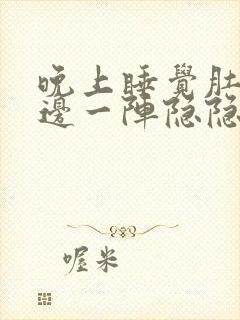 晚上睡覺肚
邊一陣隐隐
喔米